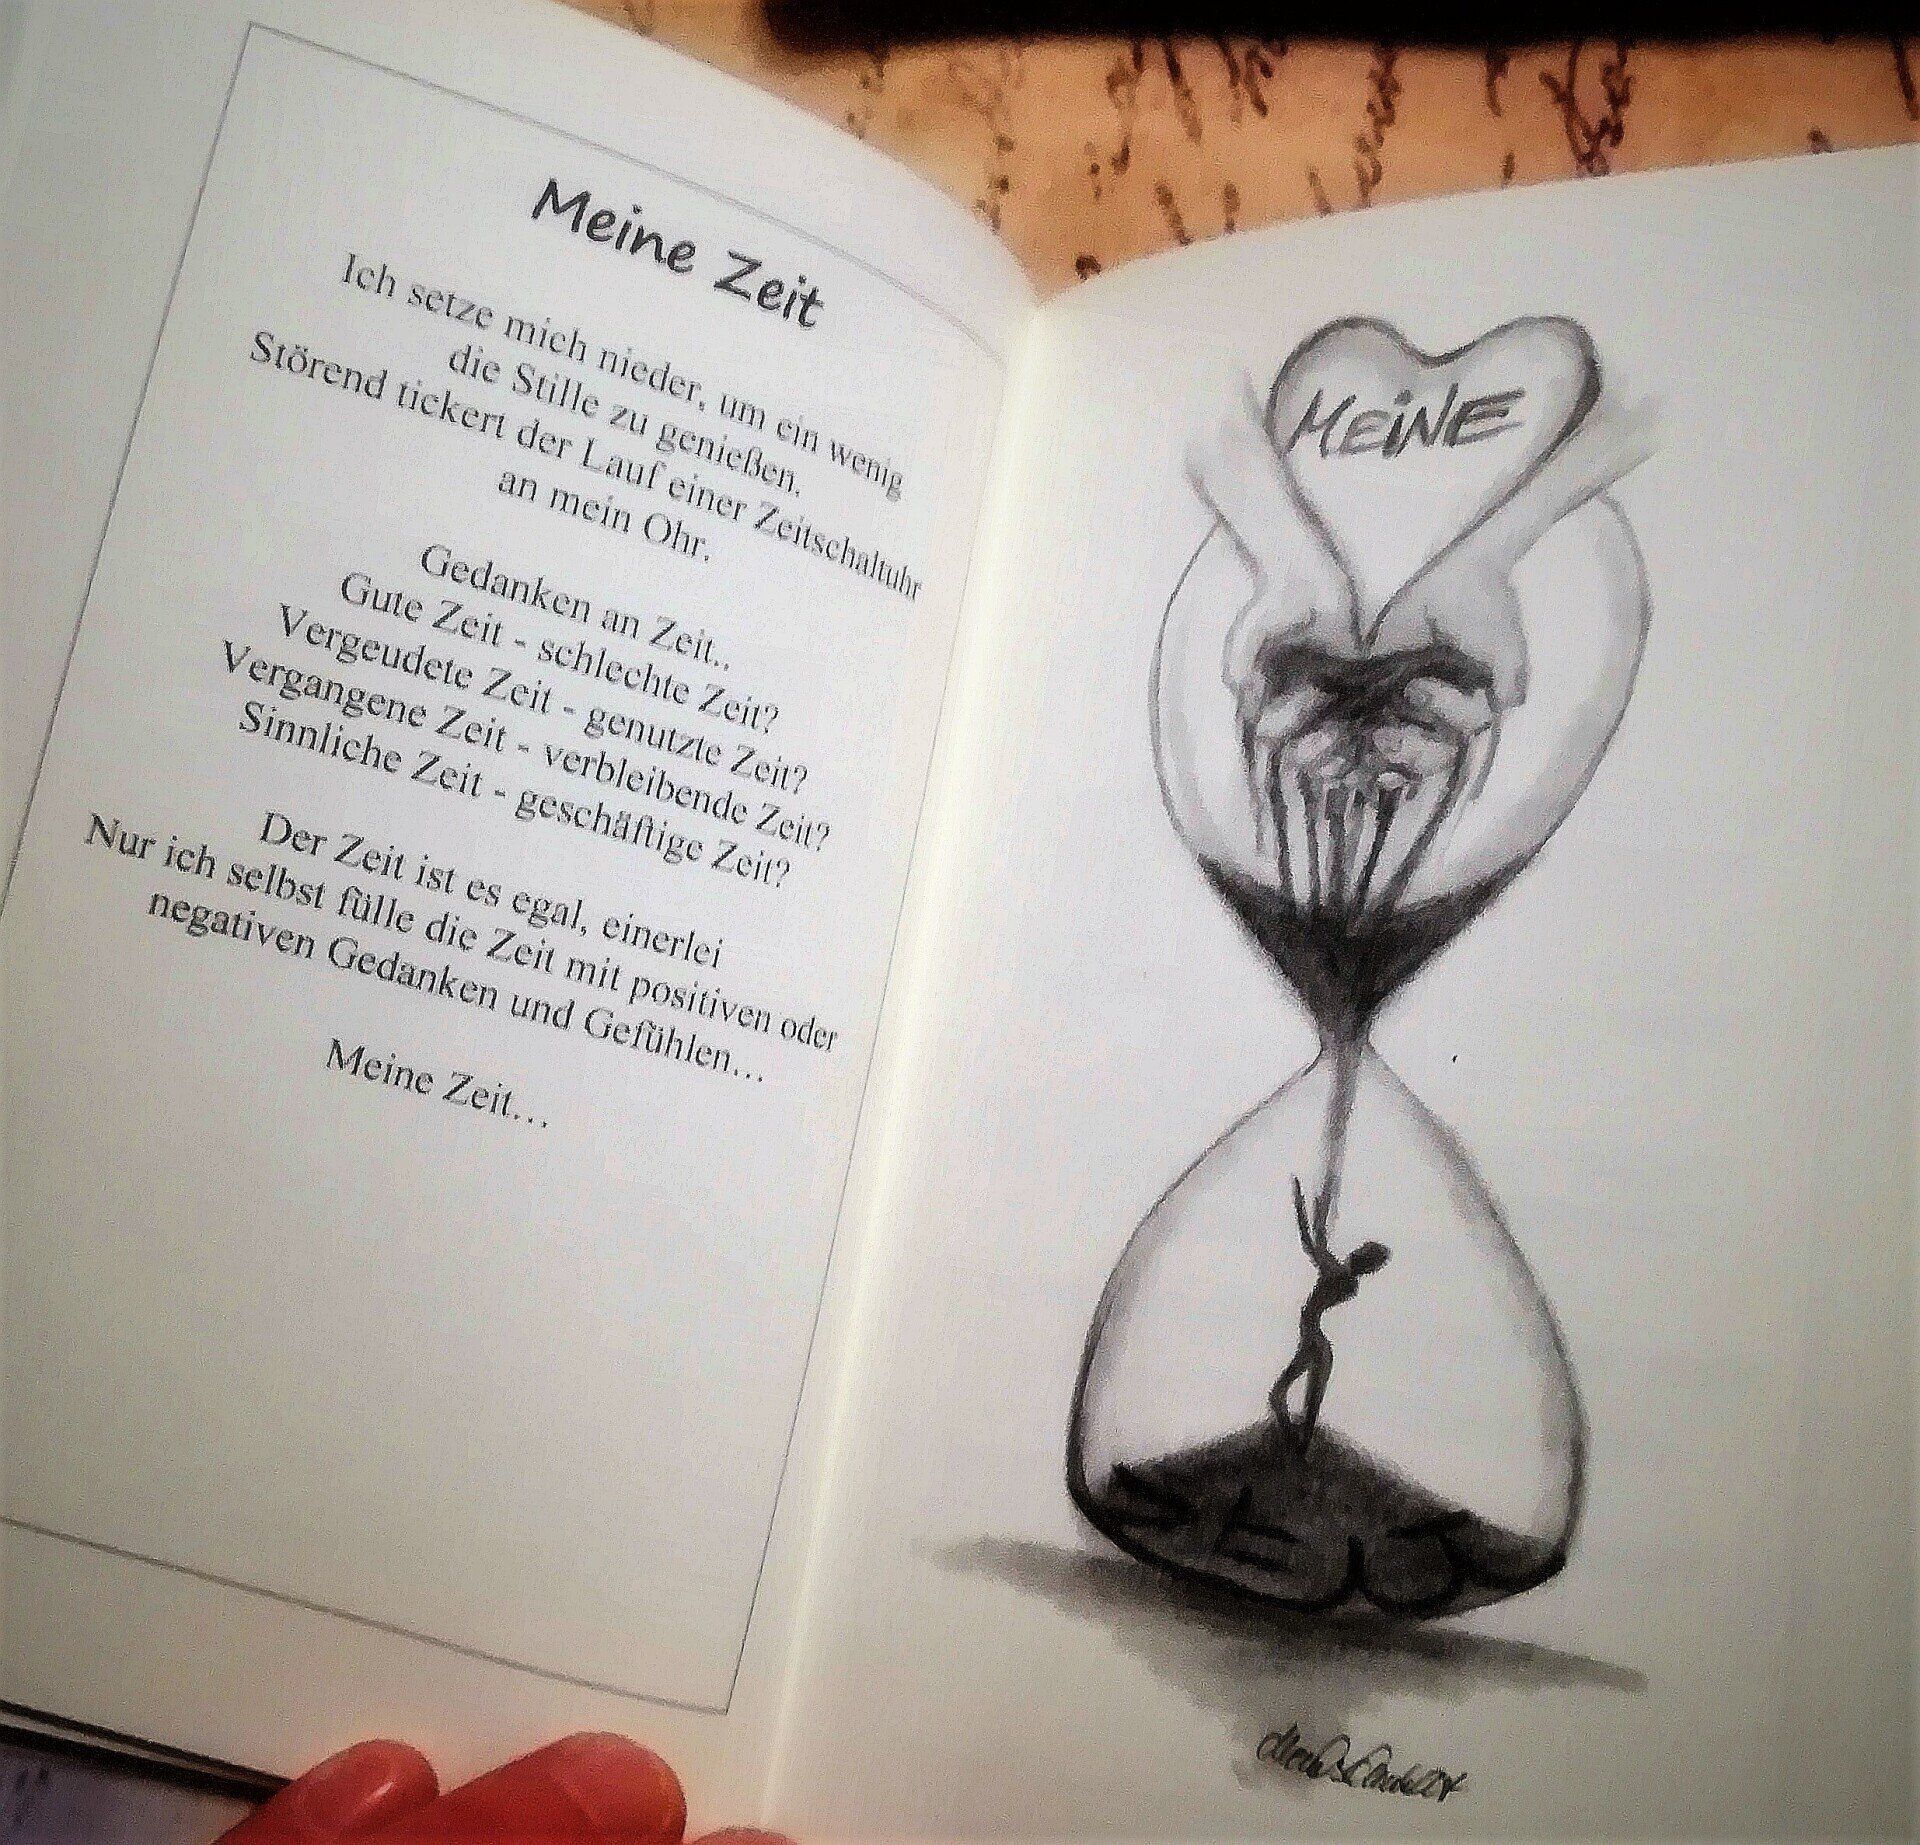 Meine Zeit
Ich setze mich nieder, um ein wenig
die Stille zu genießen.
Störend tickert der Lauf einer Zeitschaltuhr
an mein Ohr.
Gedanken an Zeit..
Gute Zeit - schlechte Zeit?
Vergeudete Zeit - genutzte Zeit?
Vergangene Zeit - verbleibende Zeit?
Sinnliche Zeit - geschäftige Zeit?
Der Zeit ist es egal, einerlei
Nur ich selbst fülle die Zeit mit positiven oder
negativen Gedanken und Gefühlen...
Meine Zeit...
MEiNE